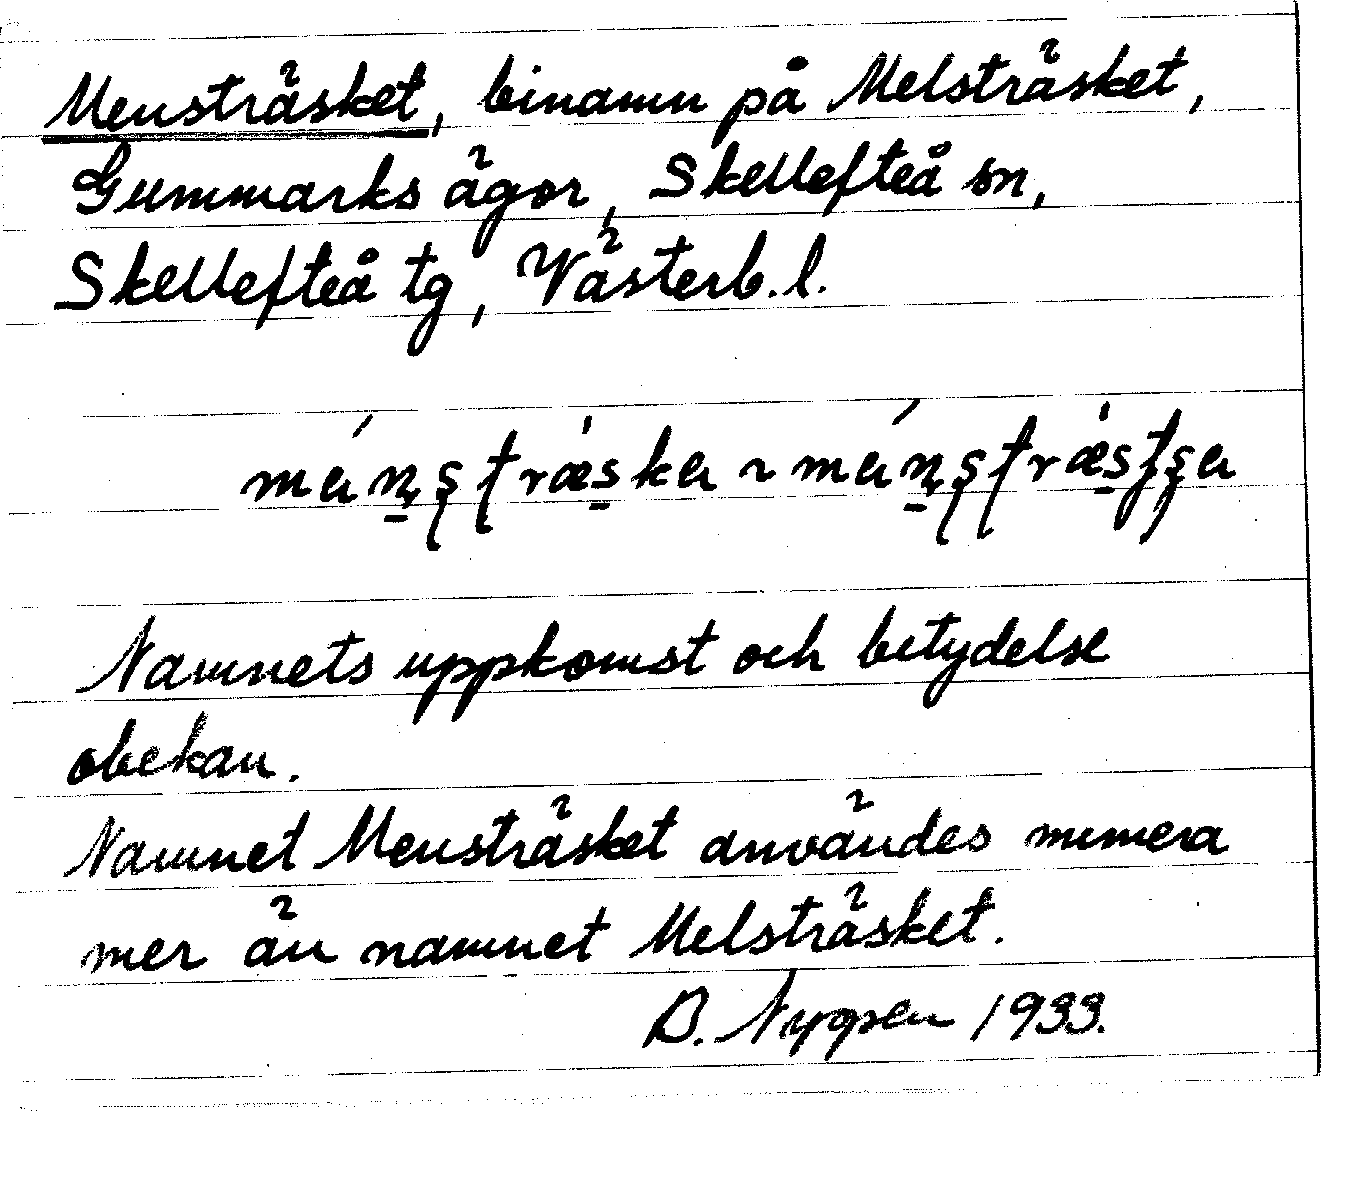 Mensträsket, binamn på Melsträsket,
Gummarks ägor, Skellefteå sn,
Skellefteå tg, Västerb. l.
Namnets uppkomst och betydelse
obekan.
Namnet Mensträsket användes numera
mer än namnet Melsträsket.
1933.